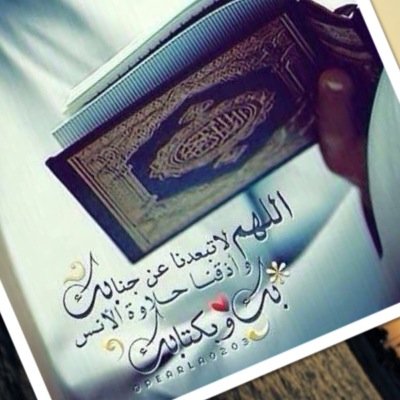 اللهم لاتبعدنا عن جنابك
واذقنا حلاوة الأنس
بك وبكتابك
@PEARLA0203